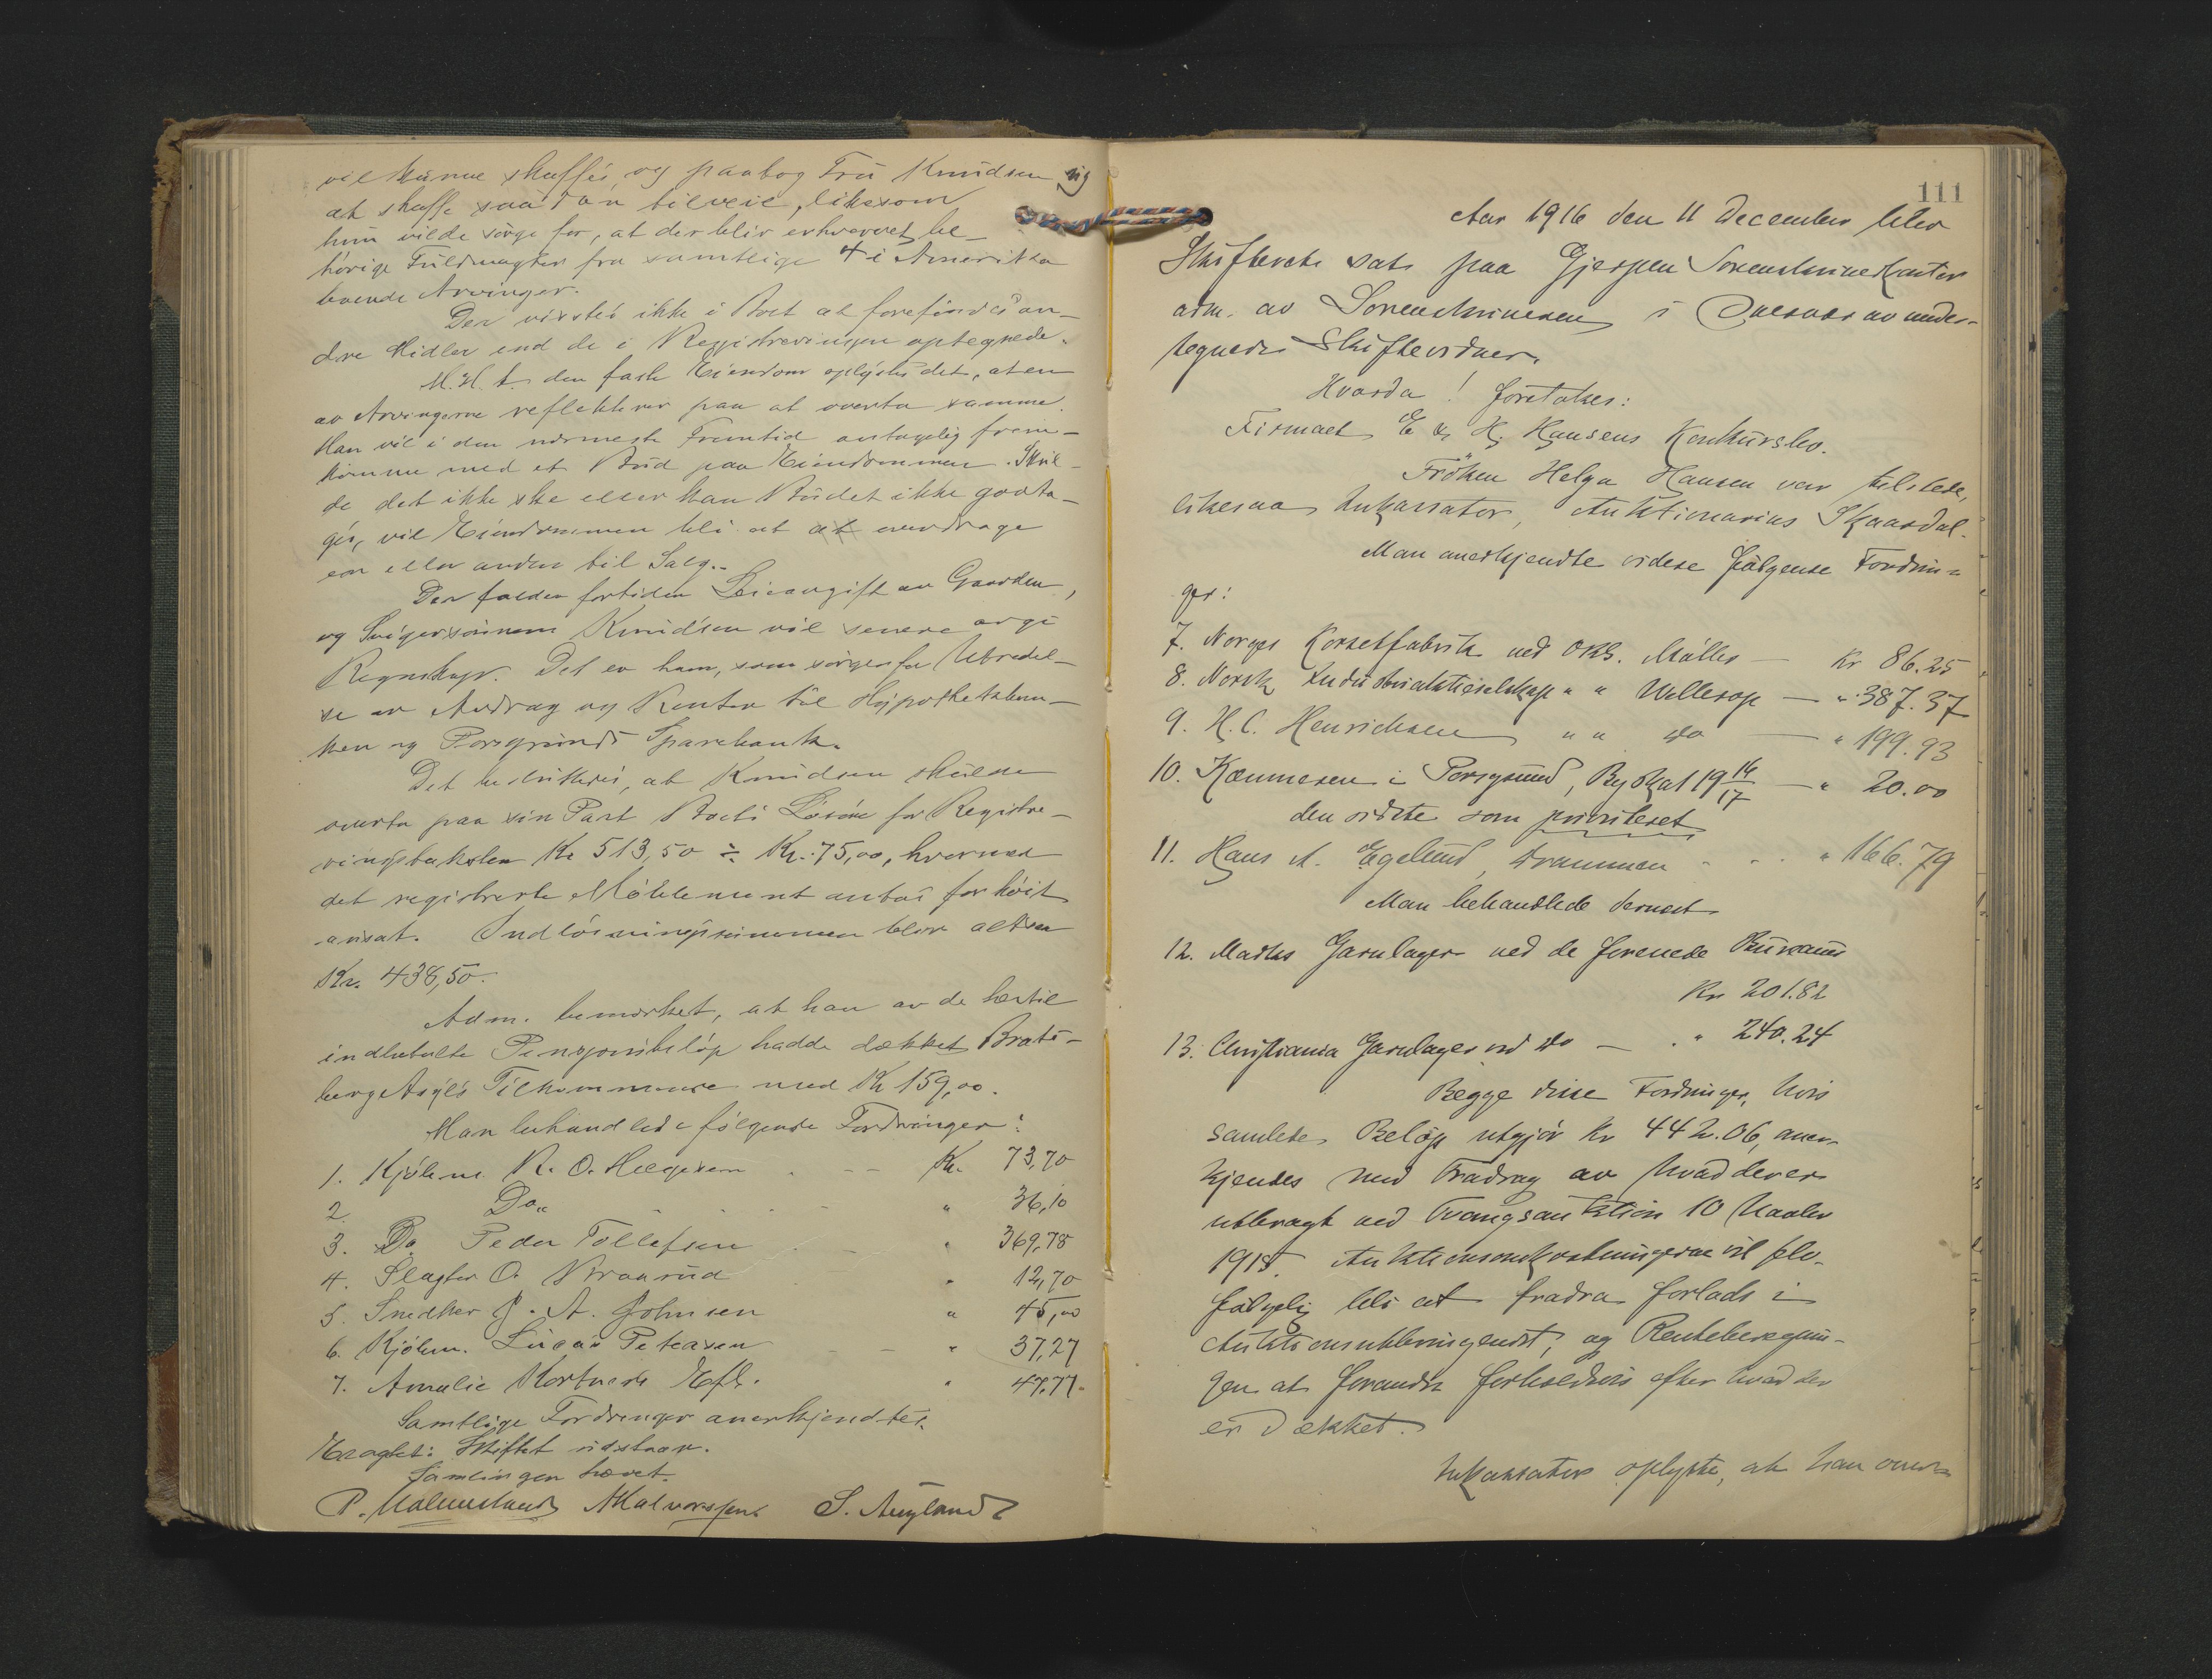 vil kunne skaffes, og paatog Fru Knudsen sig
at skaffe saadan tilveie, likesom
hun vilde sørge for, at der blir erhvervet be-
hørige Fuldmagter fra samtlige 4 i Amerika
boende Arvinger.
Der vistes ikke i Boet at forefindes an-
dre Midler end de i Registreringen optegnede.
M.H.t. den faste Eiendom oplystes det, at en
av Arvingerne reflekterer paa at overta samme.
Han vil i den nærmeste Fremtid antagelig frem-
komme med et Bud paa Eiendommen. Skul-
de det ikke ske eller kan Budet ikke godta-
ges, vil Eiendommen bli at at overdrage
en eller anden til Salg.-
Der falder fortiden Leieavgift av Gaarden,
og Svigersønnen Knudsen vil senere avgi
Regnskap. Det er ham, som sørger for Utredel-
se av Avdrag og Renter til Hypothekban-
ken og Porsgrunds Sparebank.
Det besluttedes, at Knudsen skulde
overta paa sin Part Boets Løsøre for Registre-
ringstaksten Kr 513,50 ÷ Kr. 75,00, hvormed
det registrerte Møblement antas for høit
ansat. Indløsningssummen blir altsaa
Kr. 438,50.
Adm. bemerket, at han av de hertil
indbetalte Pensjonsbeløp hadde dækket Brats-
berg Asyls Tilkommende med Kr 159,00.
Man behandlede følgende Fordringer:
1. Kjøbm. R. O. Helgesen - - Kr. 73,70
2. Do " - - " 36,10
3. Do Peder Tollefsen - " 369,78
4. Slagter O. Braarud " 12,70
5. Snedker J. A. Johnsen " 45,00
6. Kjøbm. Lucas Petersen - - " 37,27
7. Amalie Kortners Eftf. " 47,77.
Samtlige Fordringer anerkjendtes.
Eragtet: Skiftet utstaar.
Samlingen hævet.
P. Halvorsen S. Augland
111
Aar 1916 den 11 December blev
Skifteret sat paa Gjerpen Sorenskriverkontor
adm. av Sorenskriveren i Overvær av under-
tegnede Skiftevidner.
Hvorda! foretokes:
Firmaet E & H. Hansens Konkursbo.
Frøken Helga Hansen var tilstede,
likesaa Inkassator, Auktionarius Skaardal.
Man anerkjendte videre følgende Fordrin-
ger:
7. Norges Korsetfabrik ved OKS. Møller — Kr 86.25
8. Norsk Industriaktieselskap " " Willesop — " 387.37
9. H. C. Henrichsen " " do — " 199.93
10. Kæmneren i Porsgrund, Byskat 19 16/17 — " 20.00
den sidste som prioritert
11. Hans A. Egelund, Drammen - . . " 166.79
Man behandlede dernæst
12. Madlis Garnlager ved de forenede Bureauer
Kr 201.82
13. Christiania Garnlager ved do — . " 240.24
Begge disse Fordringer, hvis
samlede Beløp utgjør Kr 442.06, aner-
kjendes med Fradrag av hvad der er
utbragt ved Tvangsauktion 10
1915. Auktionsomkostningerne vil selv-
følgelig bli at fradra forlods i
Auktionsutbringendet, og Rentebereegnin-
gen at forandre forholdsvis efter hvad der
er dækket.
Inkassator oplyste, at han over-